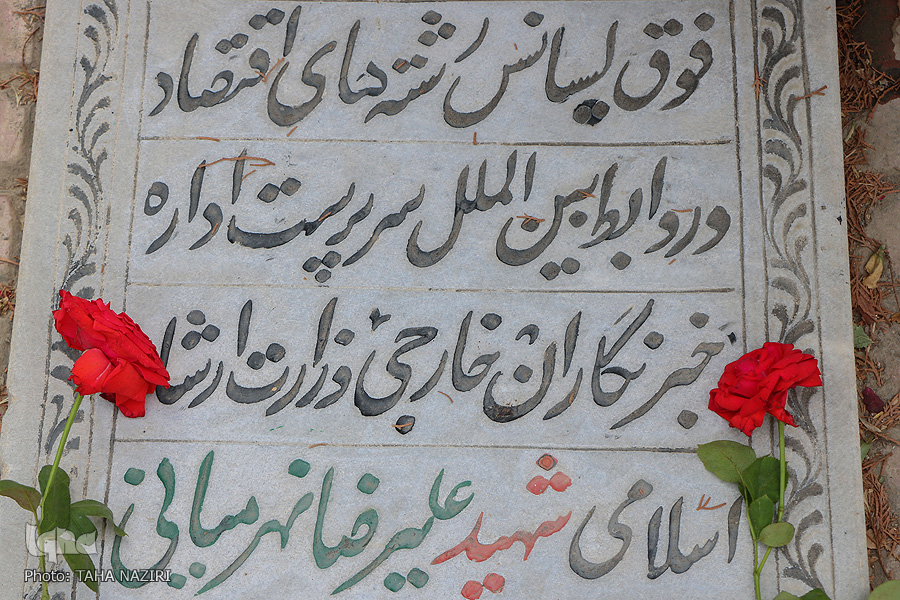 فوق لیسانس رشته های اقتصاد
و روابط بین الملل سرپرست اداره
خبرنگاران خارجی وزارت ارشاد
اسلامی شهید علیرضا نهر میانی
iqna
Photo: TAHA NAZIRI